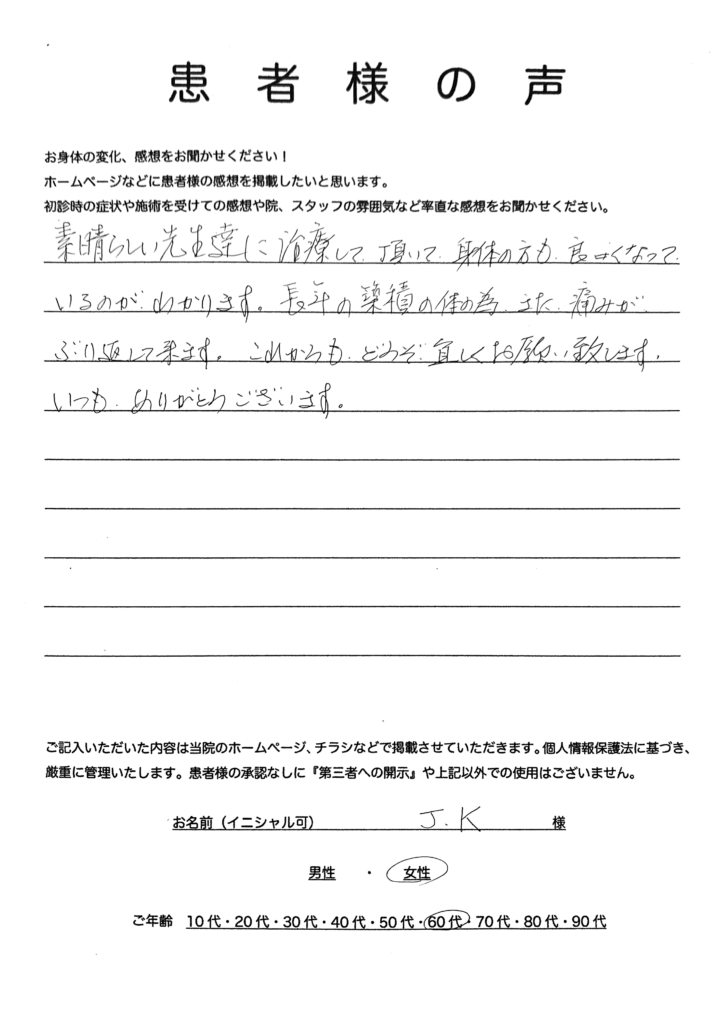 患者様の声
お身体の変化、感想をお聞かせください！
ホームページなどに患者様の感想を掲載したいと思います。
初診時の症状や施術を受けての感想や院、スタッフの雰囲気など率直な感想をお聞かせください。
素晴らしい先生達に治療して頂いて、身体の方も良くなって
いるのがわかります。長年の築積の体の為、また、痛みが
ぶり返して来ます。これからも、どうぞ宜しくお願い致します。
いつも、ありがとうございます。
ご記入いただいた内容は当院のホームページ、チラシなどで掲載させていただきます。個人情報保護法に基づき、
厳重に管理いたします。患者様の承認なしに『第三者への開示』や上記以外での使用はございません。
お名前（イニシャル可） J.K 様
男性 ・ 女性
ご年齢 10代・20代・30代・40代・50代・60代・70代・80代・90代